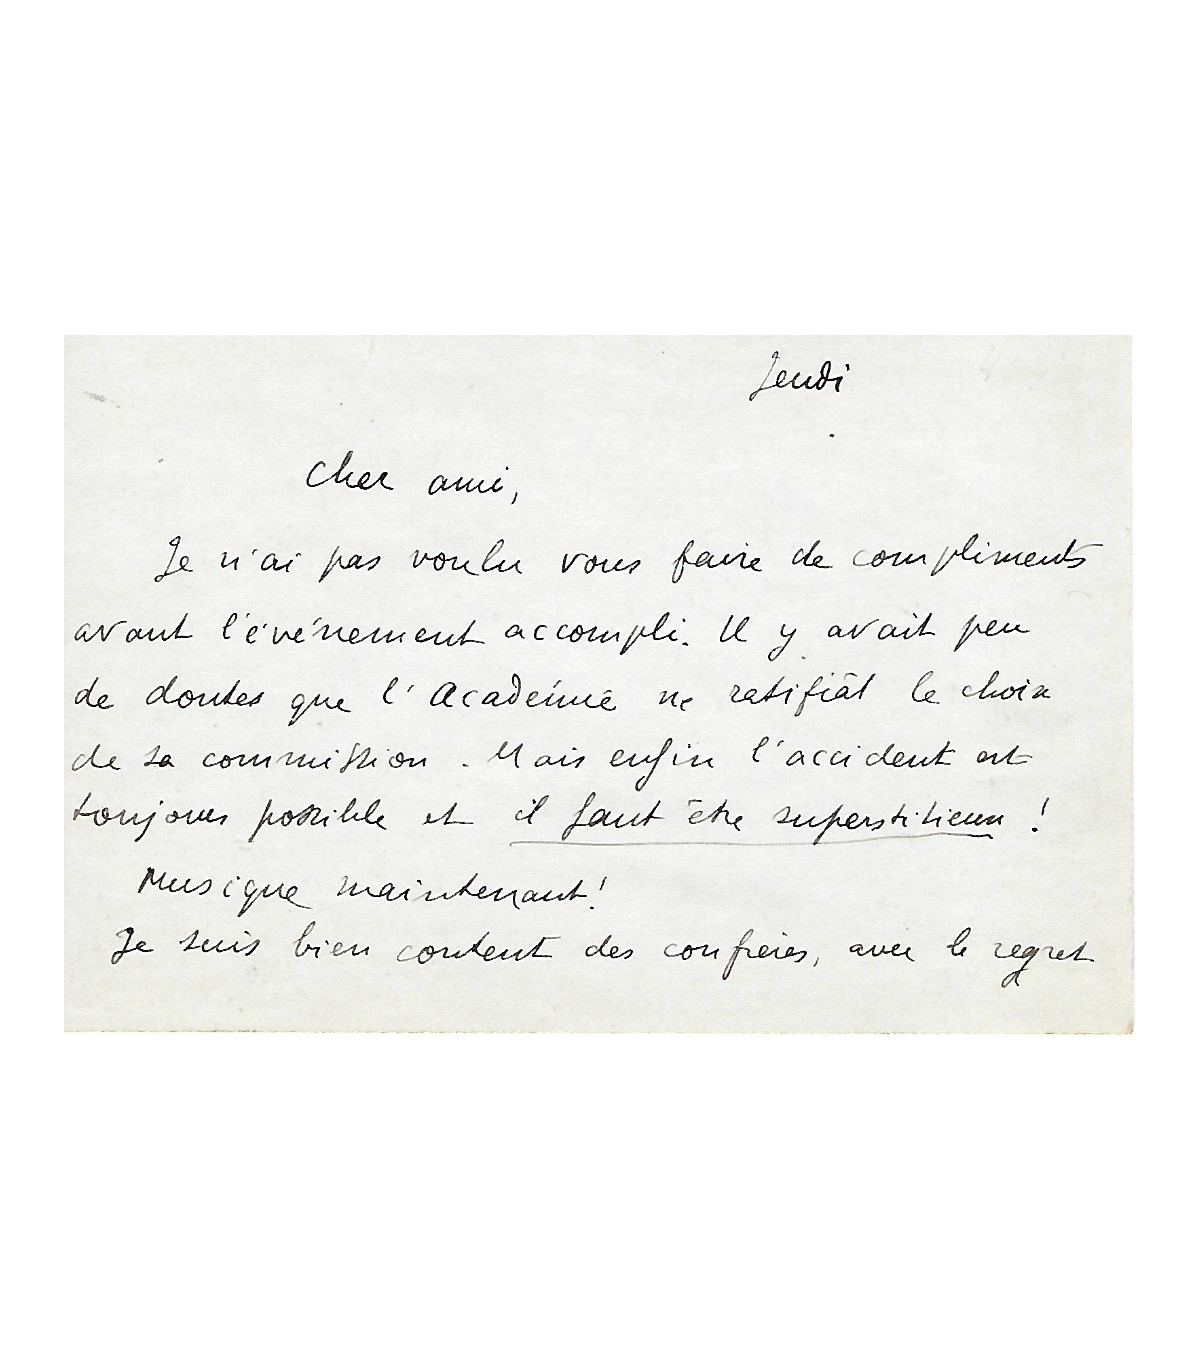 Jeudi
Cher ami,
Je n'ai pas voulu vous faire de compliments
avant l'événement accompli. Il y avait peu
de doutes que l'Académie ne ratifiât le choix
de sa commission. Mais enfin l'accident est
toujours possible et il faut être superstitieux !
Musique maintenant !
Je suis bien content des confrères, avec le regret